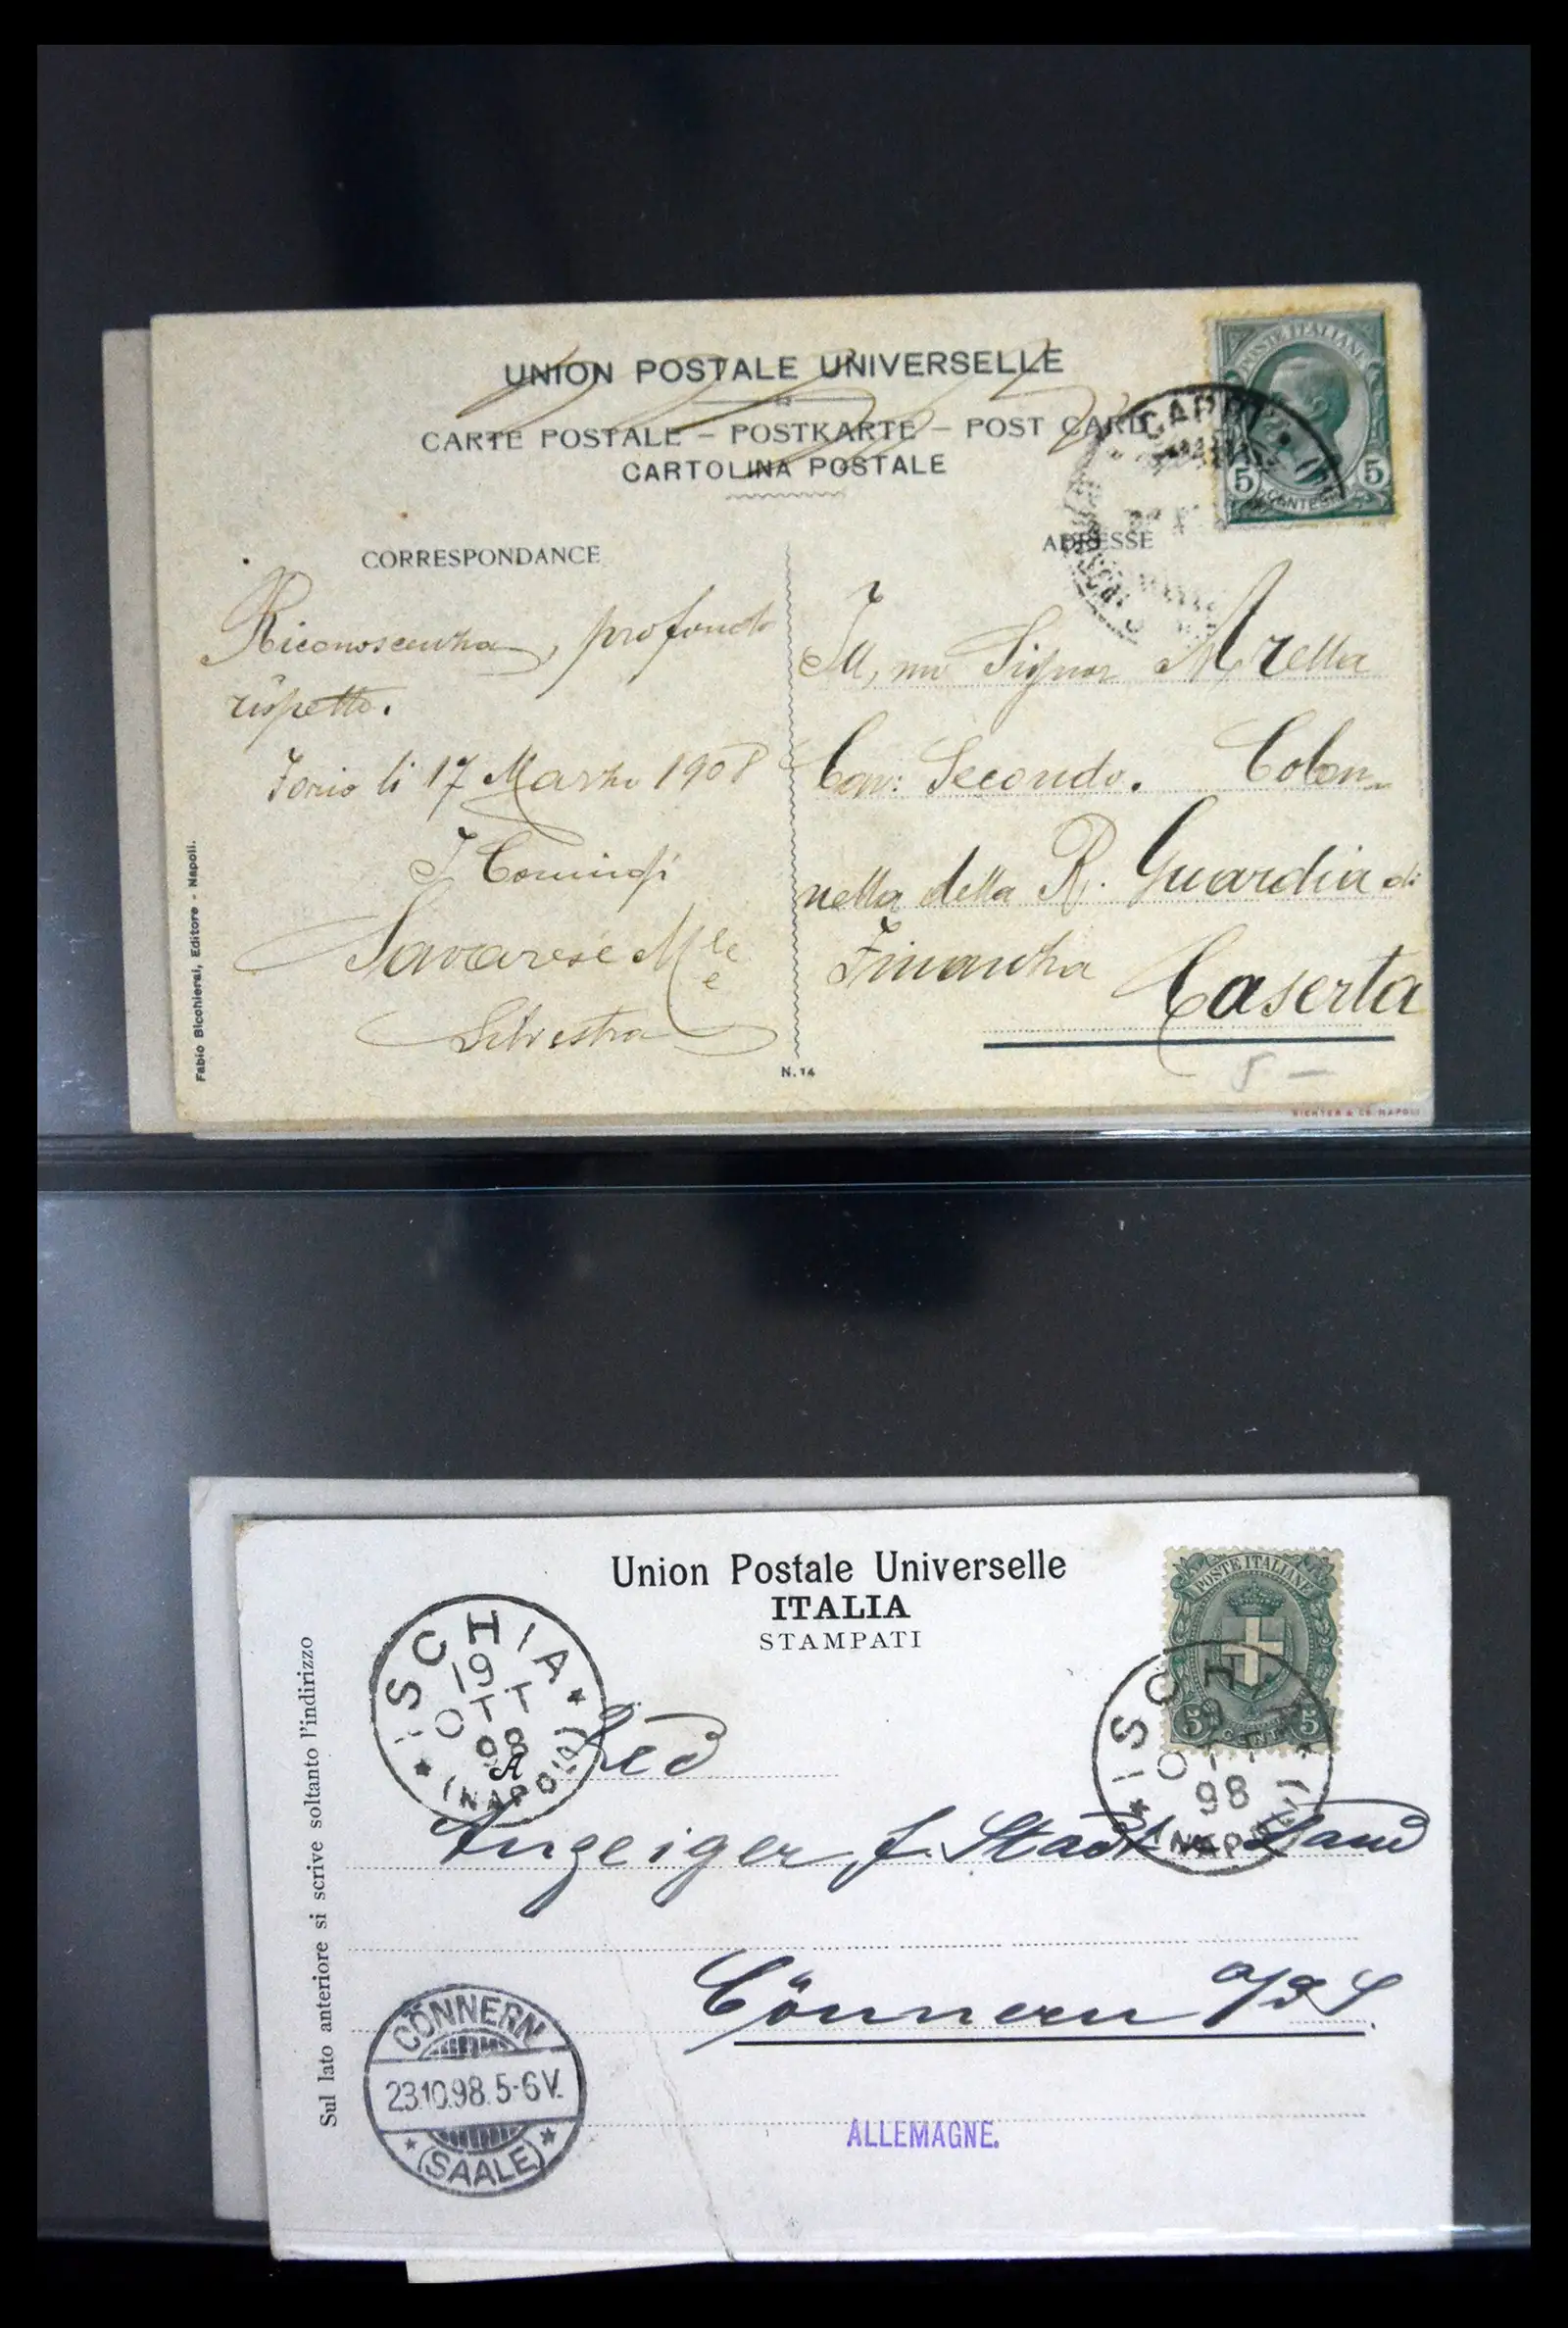 UNION POSTALE UNIVERSELLE
CARTE POSTALE – POSTKARTE – POST CARD
CARTOLINA POSTALE
POSTE ITALIANE
5 5
CORRESPONDANCE
ADRESSE
Riconoscenza, profondo
rispetto.
li 17 Marzo 1908
Savarese
Silvestra
Signor
Cav: Secondo. Colon-
nello della R. Guardia di
Finanza
Caserta
5 –
Fabio Bicchierai, Editore - Napoli.
N. 14
RICHTER & Co. NAPOLI
Union Postale Universelle
ITALIA
STAMPATI
POSTE ITALIANE
5 5
ISCHIA
19
OTT
98
A
(NAPOLI)
ISCHIA
OTT
98
(NAPOLI)
Red
Anzeiger f. Stadt Land
Cönnern a/d S.
CÖNNERN
23.10.98.5-6V.
(SAALE)
ALLEMAGNE.
Sul lato anteriore si scrive soltanto l'indirizzo